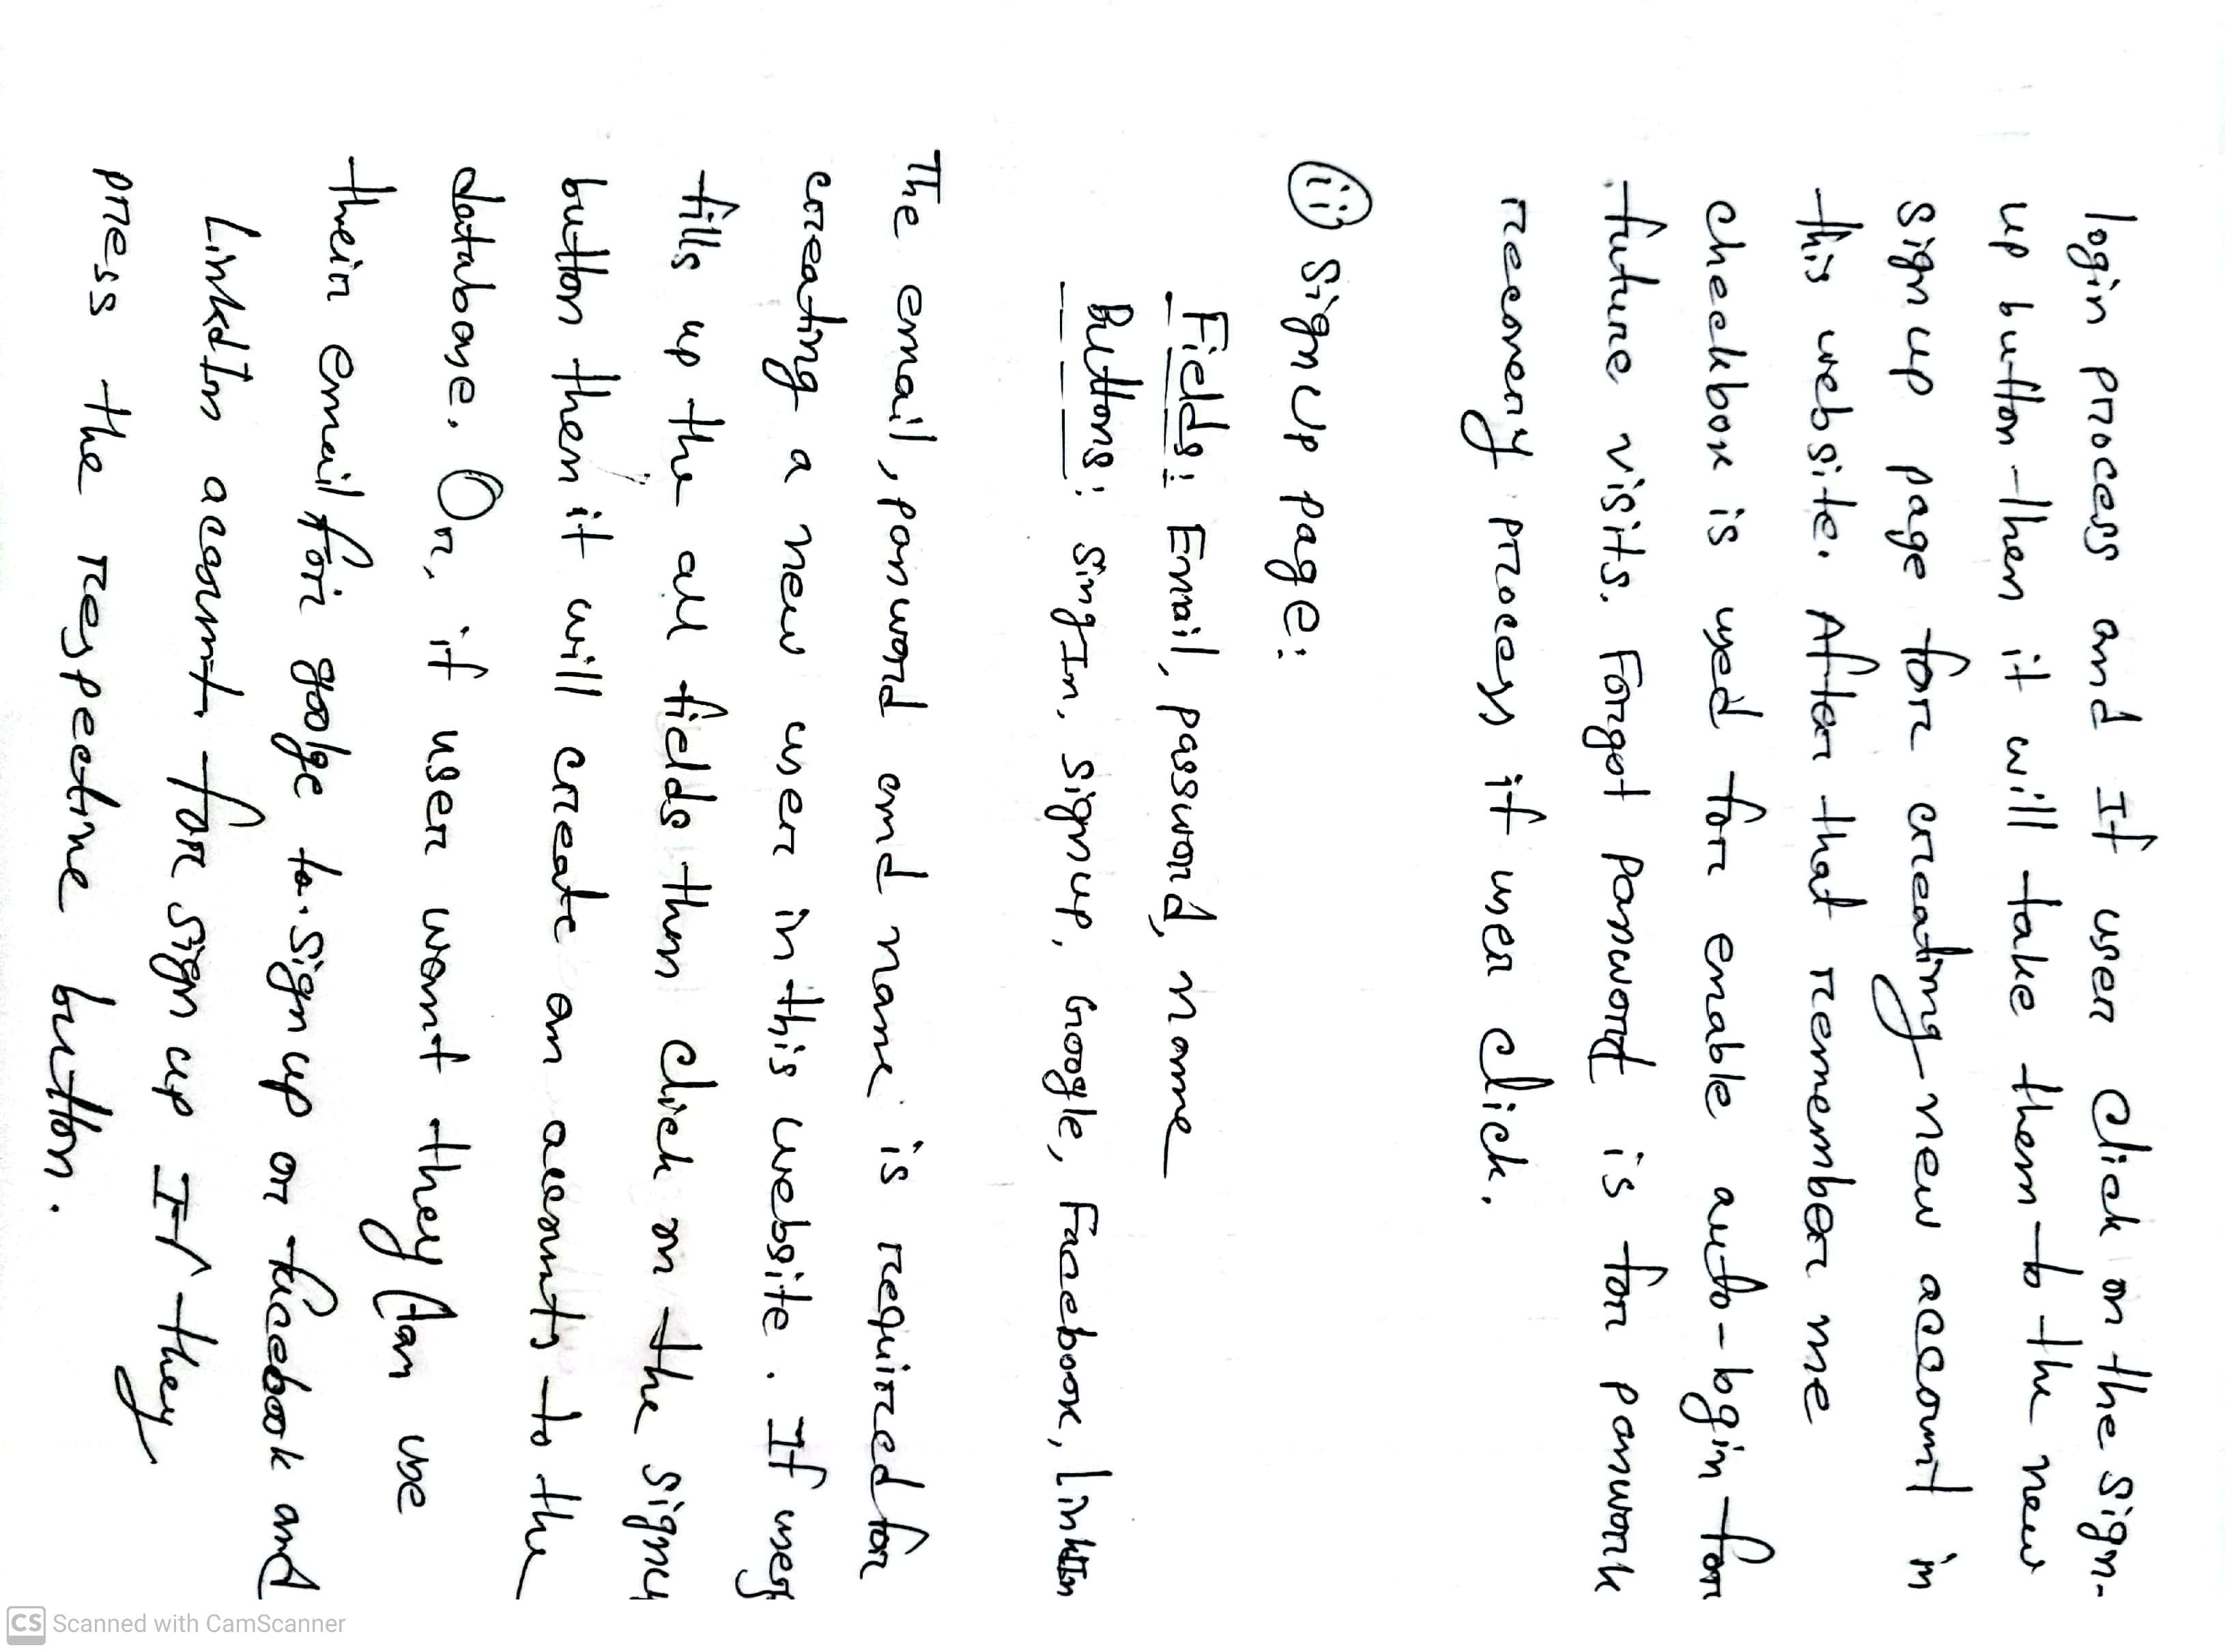 login process and If user click on the sign-
up button then it will take them to the new
sign up page for creating new account in
this website. After that remember me
checkbox is used for enable auto-login for
future visits. Forgot Password is for passwork
recovery process if user click.
(ii) Sign up page:
Fields: Email, password, name
Buttons: SingIn, Sign up, Google, Facebook, LinkIn
The email, password and name is required for
creating a new user in this website. If user
fills up the all fields then click on the signu
button then it will create an accounts to the
database. Or, if user want they can use
their email for goolge to sign up or facebook and
LinkdIn account for sign up If they
press the respective button.
CS Scanned with CamScanner